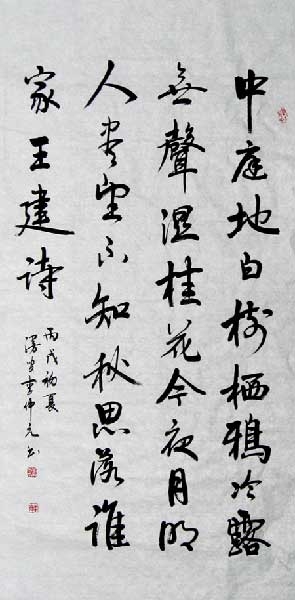 中庭地白树栖鸦冷露
無聲湿桂花今夜月明
人尽望不知秋思落谁
家王建诗
丙戌初夏